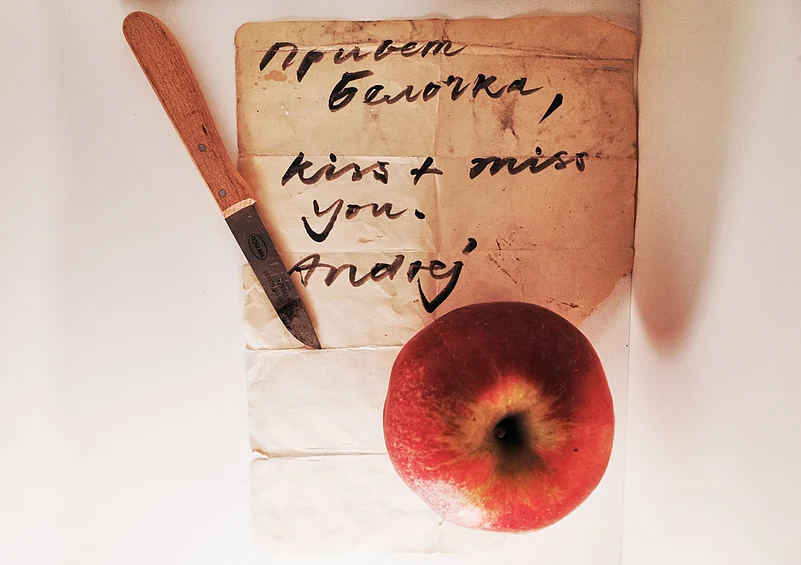 Привет
Белочка,
kiss + miss
you.
Andrej